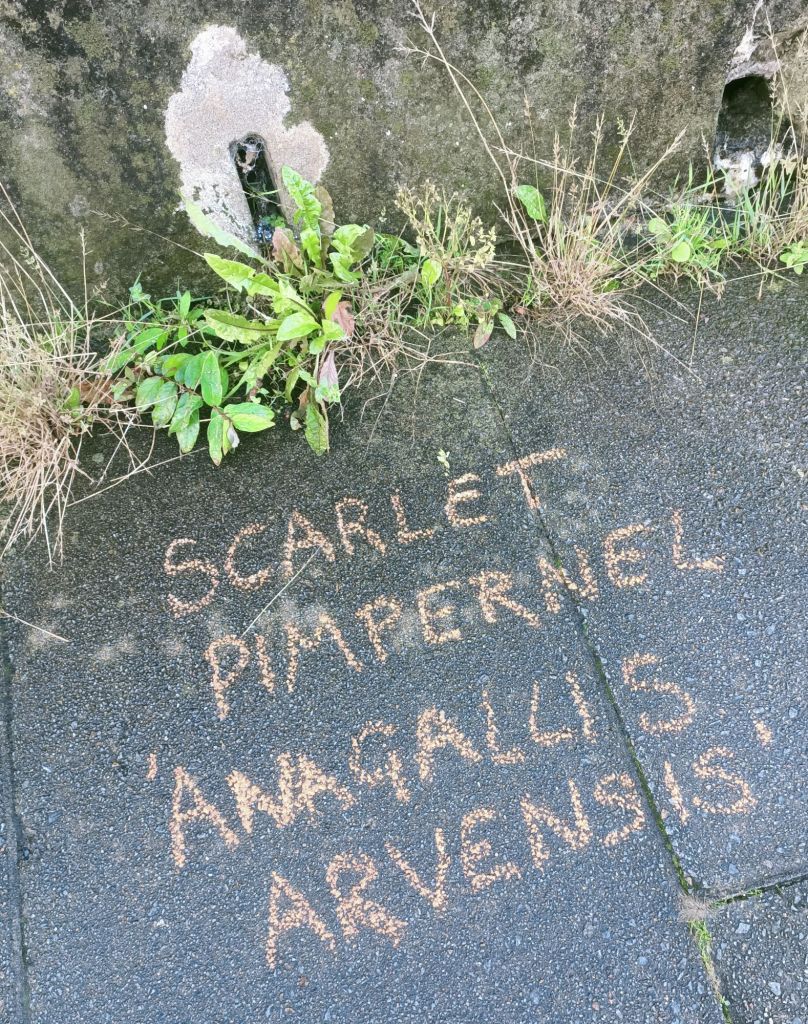 SCARLET
PIMPERNEL
'ANAGALLIS
ARVENSIS'